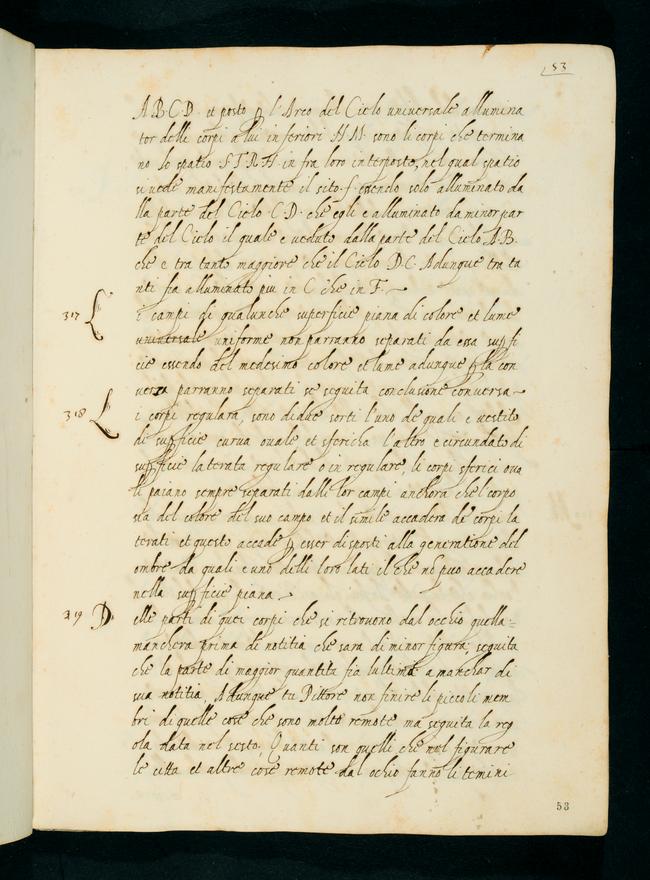 53
A.B.C.D. et posto p l'Arco del Cielo universale allumina
tor delli corpi a lui inferiori H M. sono li corpi che termina
no lo spatio S.T.R.H in fra loro interposto, nel qual spatio
si uede manifestamente il sito f. essendo solo alluminato da
lla parte del Cielo C.D. che egli e alluminato da minor par
te del Cielo il quale e ueduto dalla parte del Cielo A.B.
che e tra tanto maggiore che il Cielo D.C. Adunque tra ta
nti fia alluminato piu in C che in F.
317 Li campi di qualunche superficie piana di colore et lume
universale uniforme non parranno separati da essa suffi
cie essendo del medesimo colore et lume adunque p la con
versa parranno separati se seguita conclusione conversa
318 Li corpi regulara, sono di due sorti l'uno de quali e uestito
di sufficie curua ouale et sfericha l'altro e circundato di
sufficie laterata regulare o in regulare, li corpi sferici oua
li paiano sempre separati dalle lor campi anchora che'l corpo
sia del colore del suo campo et il simile accadera de' corpi la
terati et questo accade p esser disposti alla generatione del
ombre da quali e uno delli loro lati il che no puo accadere
nella sufficie piana
319 Delle parti di quei corpi che si ritrouono dal occhio quella=
manchera prima di notitia che sara di minor figura, seguita
che la parte di maggior quantita fia l'ultima a manchar di
sua notitia, Adunque tu Pittore non finire li piccoli mem
bri di quelle cose che sono molto remote ma seguita la reg
ola data nel sesto, Quanti son quelli che nel figurare
le citta et altre cose remote dal ochio fanno li temini
53